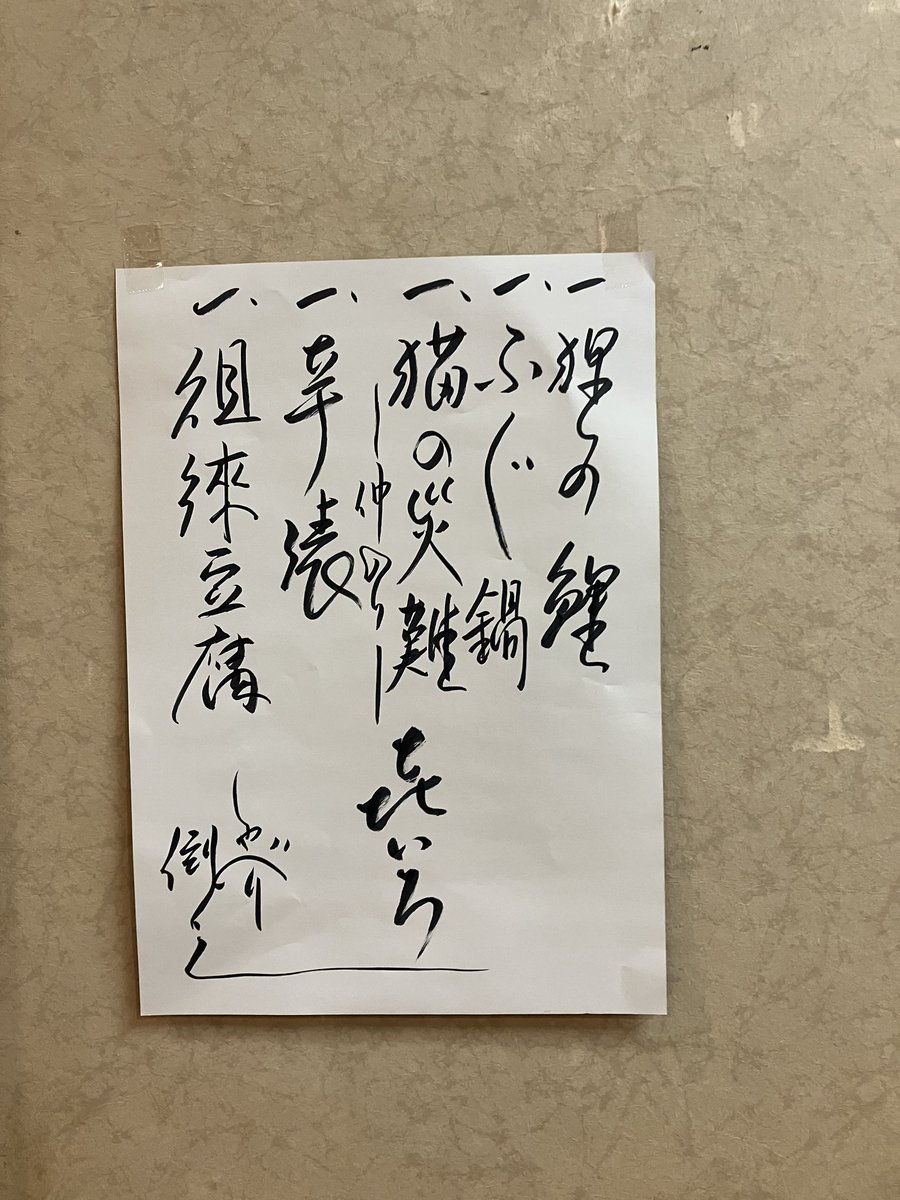 一 狸の鯉
一、ふぐ鍋
一、猫の災難 㐂いろ
―仲の入―
一、幸
一、徂徠豆腐
しゃべり倒し